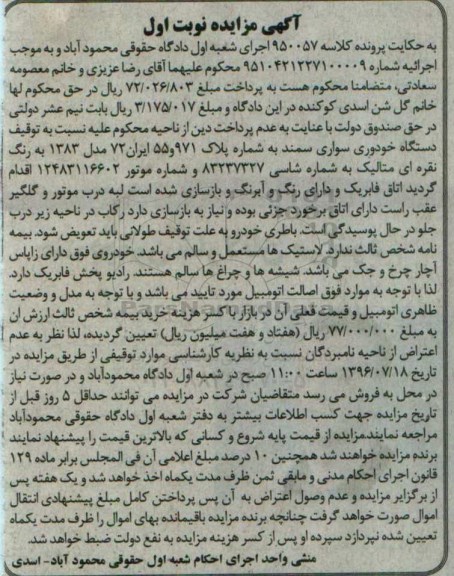 آگهی مزایده نوبت اول
به حکایت پرونده کلاسه ۹۵۰۰۵۷ اجرای شعبه اول دادگاه حقوقی محمود آباد و به موجب
اجرائیه شماره ۹۵۱۰۴۲۱۲۲۷۱۰۰۰۰۹ محکوم علیهما آقای رضا عزیزی و خانم معصومه
سعادتی، متضامنا محکوم هست به پرداخت مبلغ ۷۲/۰۲۶/۸۰۳ ریال در حق محکوم لها
خانم گل شن اسدی کوکنده در این دادگاه و مبلغ ۳/۱۷۵/۰۱۷ ریال بابت نیم عشر دولتی
در حق صندوق دولت با عنایت به عدم پرداخت دین از ناحیه محکوم علیه نسبت به توقیف
دستگاه خودوری سواری سمند به شماره پلاک ۹۷۱و۵۵ ایران۷۲ مدل ۱۳۸۳ به رنگ
نقره ای متالیک به شماره شاسی ۸۳۲۳۷۳۲۷ و شماره موتور ۱۲۴۸۳۱۱۶۶۰۲ اقدام
گردید اتاق فابریک و دارای رنگ و آبرنگ و بازسازی شده است لبه درب موتور و گلگیر
عقب راست دارای اتاق برخورد جزئی بوده و نیاز به بازسازی دارد رکاب در ناحیه زیر درب
جلو در حال پوسیدگی است. باطری خودرو به علت توقیف طولانی باید تعویض شود. بیمه
نامه شخص ثالث ندارد. لاستیک ها مستعمل و سالم می باشد. خودروی فوق دارای زاپاس
آچار چرخ و جک می باشد. شیشه ها و چراغ ها سالم هستند. رادیو پخش فابریک دارد.
لذا با توجه به موارد فوق اصالت اتومبیل مورد تایید می باشد و با توجه به مدل و وضعیت
ظاهری اتومبیل و قیمت فعلی آن در بازار با کسر هزینه خرید بیمه شخص ثالث ارزش ان
به مبلغ ۷۷/۰۰۰/۰۰۰ ریال (هفتاد و هفت میلیون ریال) تعیین گردیده، لذا نظر به عدم
اعتراض از ناحیه نامبردگان نسبت به نظریه کارشناسی موارد توقیفی از طریق مزایده در
تاریخ ۱۳۹۶/۰۷/۱۸ ساعت ۱۱:۰۰ صبح در شعبه اول دادگاه محمودآباد و در صورت نیاز
در محل به فروش می رسد متقاضیان شرکت در مزایده می توانند حداقل ۵ روز قبل از
تاریخ مزایده جهت کسب اطلاعات بیشتر به دفتر شعبه اول دادگاه حقوقی محمودآباد
مراجعه نمایند.مزایده از قیمت پایه شروع و کسانی که بالاترین قیمت را پیشنهاد نمایند
برنده مزایده خواهند شد همچنین ۱۰ درصد مبلغ اعلامی آن فی المجلس برابر ماده ۱۲۹
قانون اجرای احکام مدنی و مابقی ثمن ظرف مدت یکماه اخذ خواهد شد و یک هفته پس
از برگزایر مزایده و عدم وصول اعتراض به آن پس پرداختن کامل مبلغ پیشنهادی انتقال
اموال صورت خواهد گرفت چنانچه برنده مزایده باقیمانده بهای اموال را ظرف مدت یکماه
تعیین شده نپردازد سپرده او پس از کسر هزینه مزایده به نفع دولت ضبط خواهد شد.
منشی واحد اجرای احکام شعبه اول حقوقی محمود آباد- اسدی